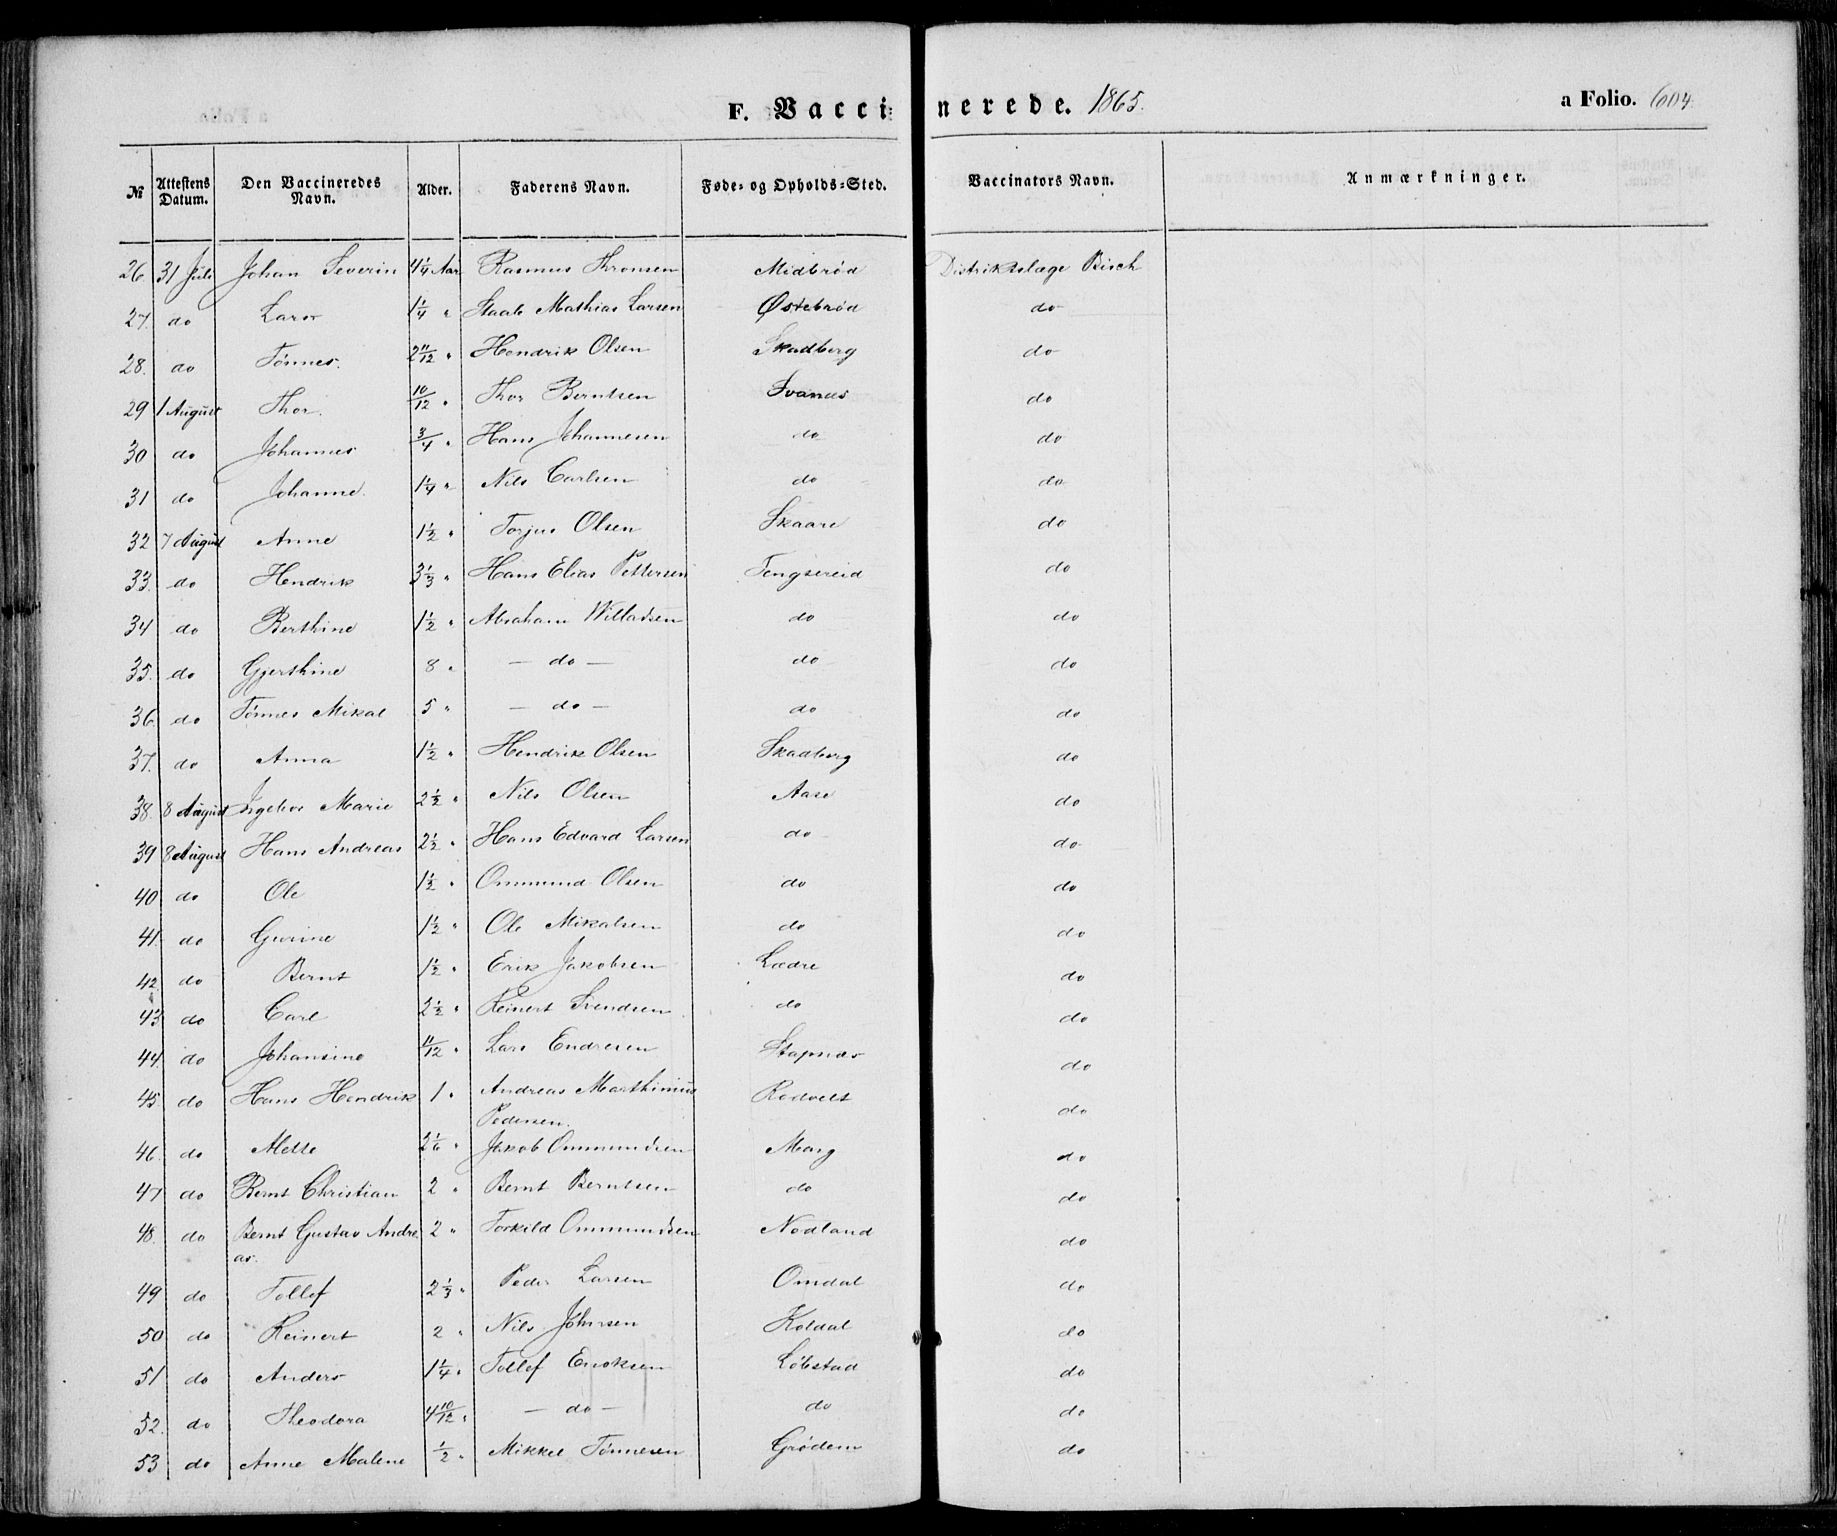 F. Vaccinerede. 1865. a Folio. 604
№ Attestens Datum. Den Vaccineredes Navn. Alder. Faderens Navn. Føde- og Opholds-Sted. Vaccinators Navn. Anmærkninger.
26 31 Juli Johan Severin 4 1/4 Aar Rasmus Thronsen Midbrød Distriktslæge Bisch
27. do Lars 1 1/4 " Staale Mathias Larsen Østebrød do
28. do Tønnes. 2 11/12 " Hendrik Olsen Skadberg do
29 1 August Thor. 10/12 " Thor Berntsen Svanes do
30 do Johannes 3/4 " Hans Johannesen do do
31 do Johanne. 1 1/4 " Nils Carlsen do do
32 7 August Anne 1 1/2 " Torjus Olsen Skaare do
33. do Hendrik 3 1/3 " Hans Elias Pettersen Tengsereid do
34 do Berthine 1 1/2 " Abraham Willadsen do do
35. do Gjerthine 8 " – do – do do
36. do Tønnes Mikal 5 " – do – do do
37. do Anna 1 1/2 " Hendrik Olsen Skadberg do
38. 8 August Ingebor Marie 2 1/2 " Nils Olsen Aase do
39 8 August Hans Andreas 2 1/2 " Hans Edvard Larsen do do
40 do Ole 1 1/2 " Ommund Olsen do do
41. do Gurine 1 1/2 " Ole Mikalsen do do
42. do Bernt 1 1/2 " Erik Jakobsen Lædre do
43 do Carl 2 1/2 " Reinert Svendsen do do
44. do Johansine 11/12 " Lars Endresen Stapnes do
45 do Hans Hendrik 1 " Andreas Marthinius Rodvelt do
Pedersen.
46. do Mette 2 1/6 " Jakob Ommundsen Mong do
47 do Bernt Christian 2 " Bernt Berntsen do do
48. do Bernt Gustav Andre 2 " Torkild Ommundsen Nodland do
as.
49 do Tollef 2 1/3 " Peder Larsen Omdal do
50 do Reinert 2 " Nils Johnsen Koldal do
51 do Anders 1 1/4 " Tollef Enoksen Løbstad do
52. do Theodora 4 10/12 " – do – do do
53 do Anne Malene 1/2 " Mikkel Tønnesen Grødem do